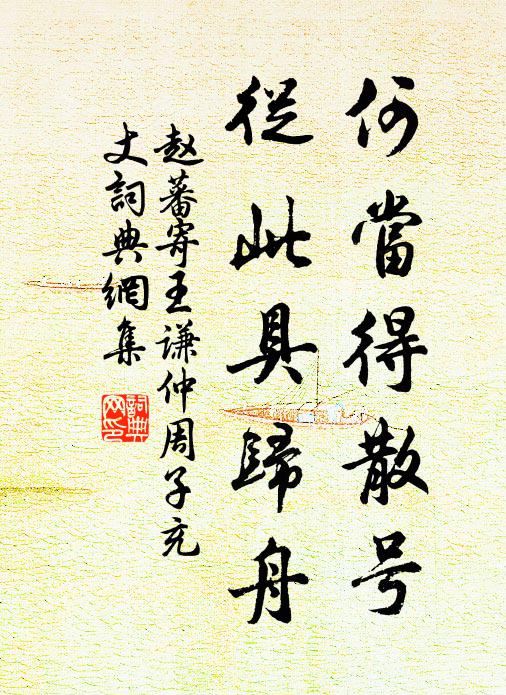 何當得散号
從此具歸舟
赵蕃寄王谦仲周子充
丈詞典網集
詞典網印